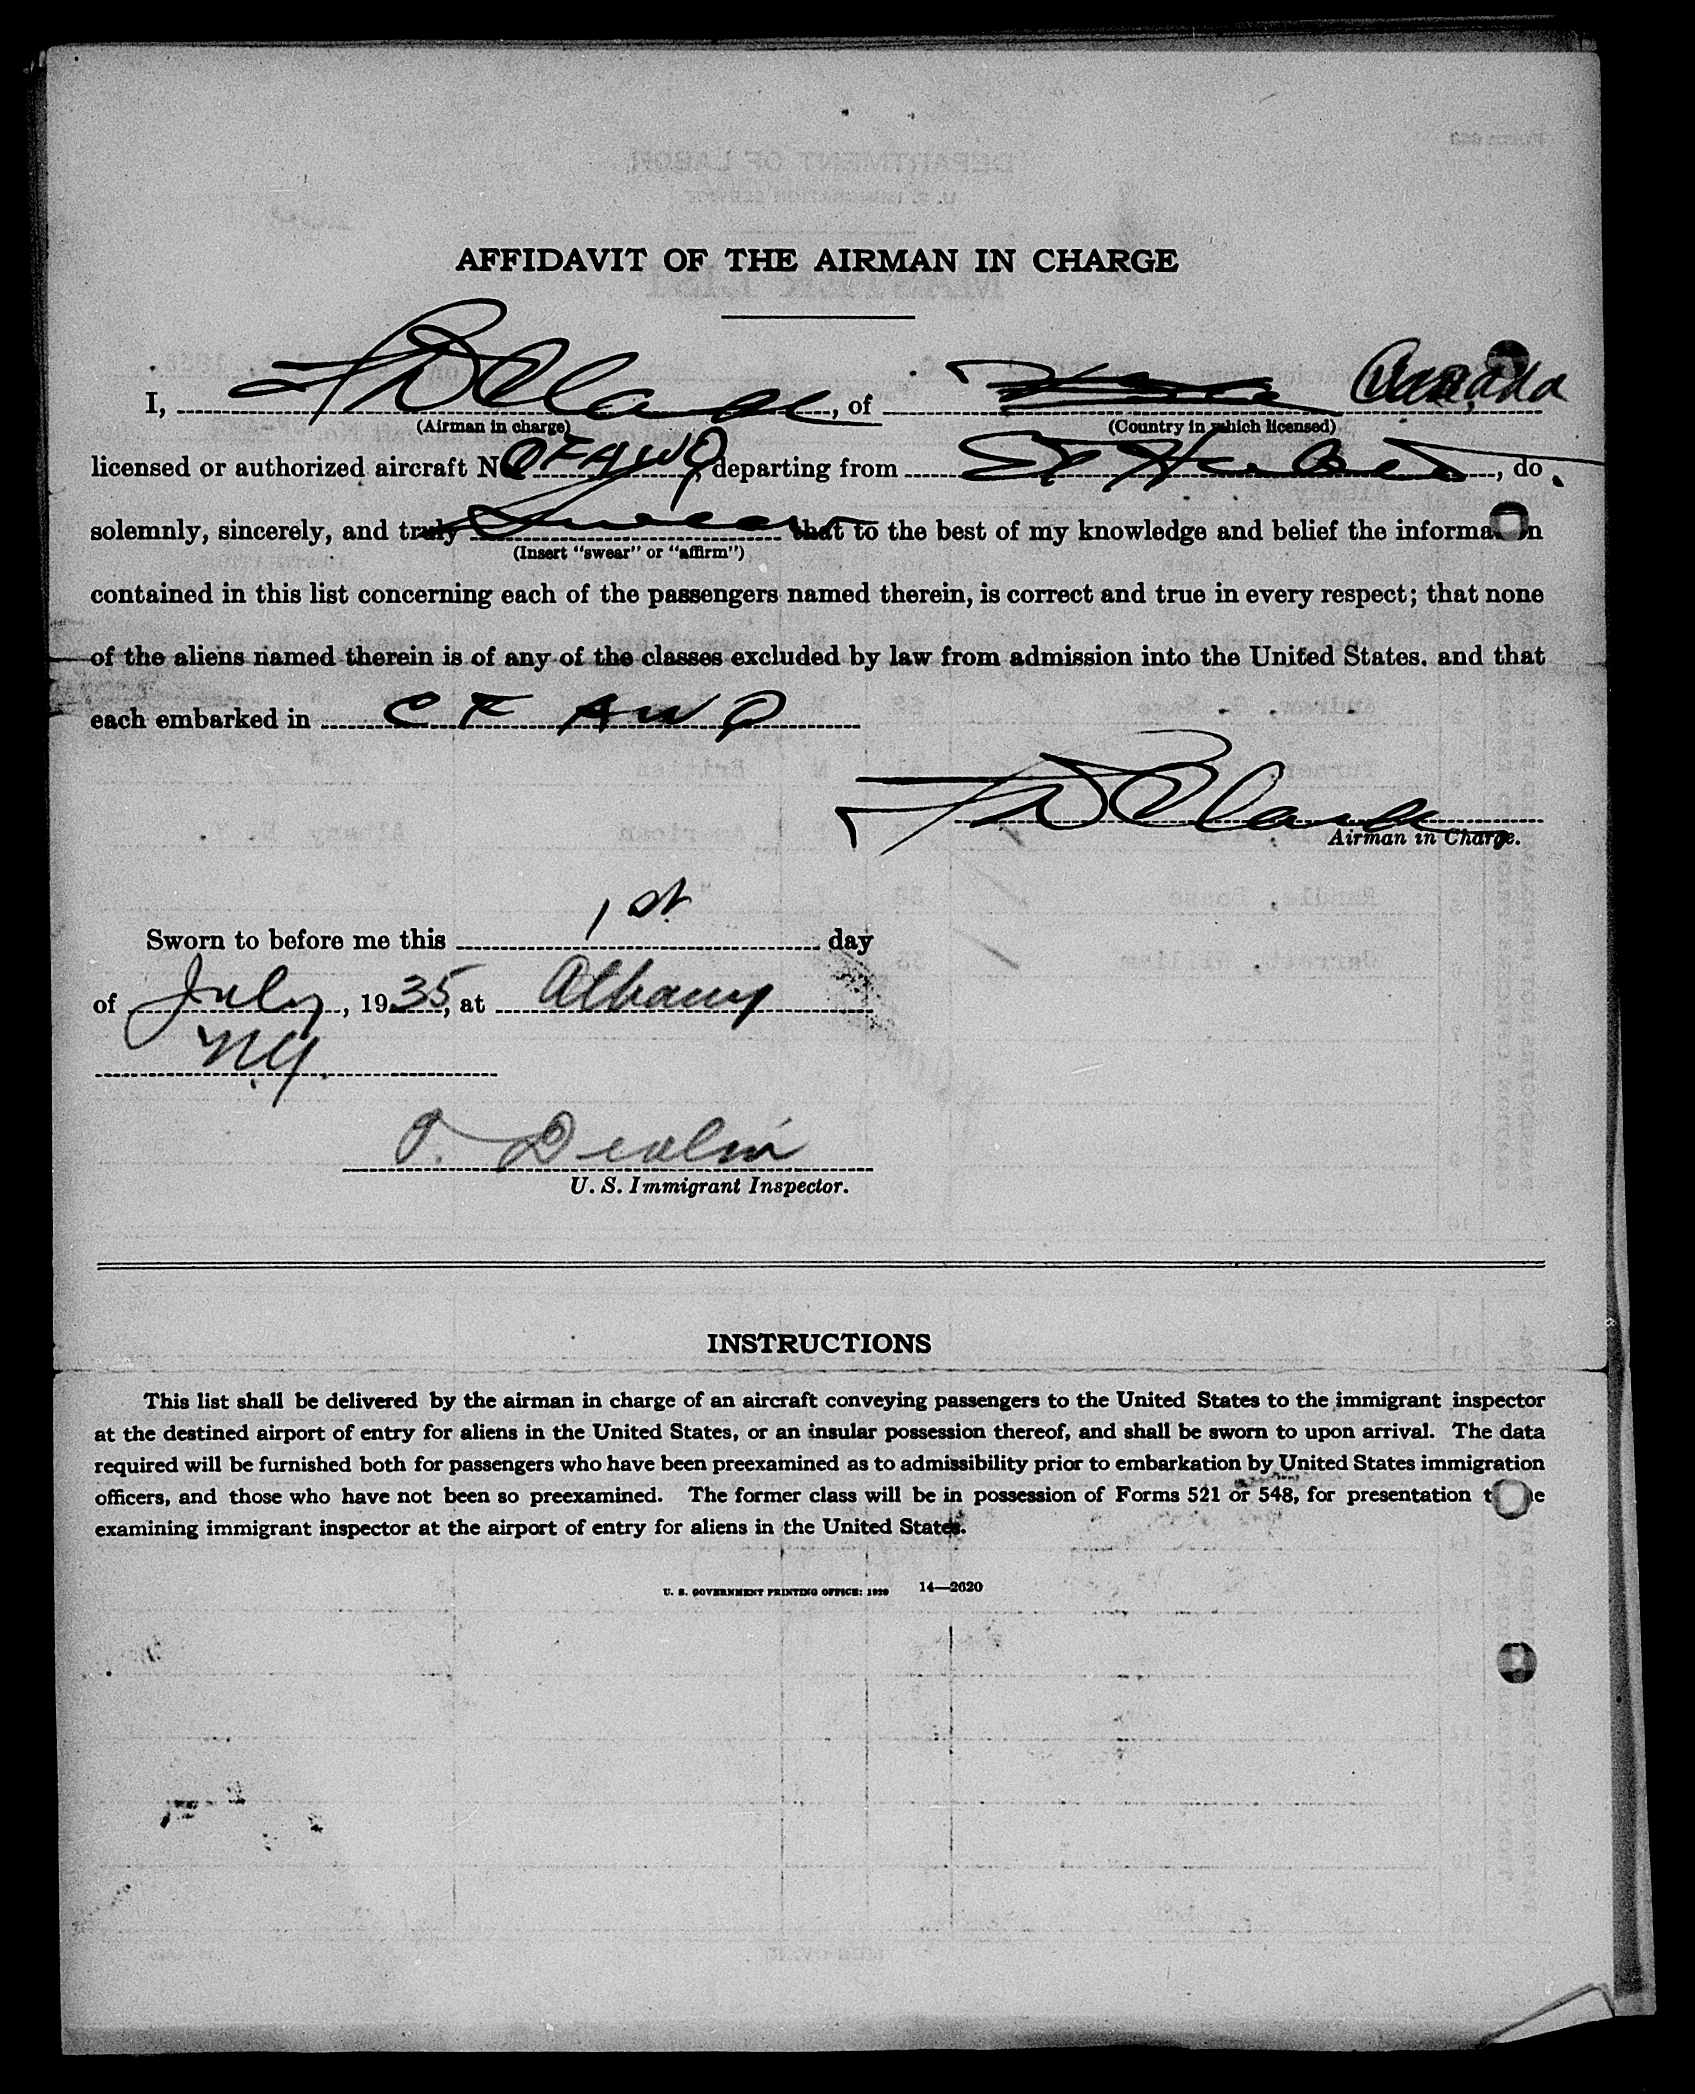 AFFIDAVIT OF THE AIRMAN IN CHARGE
I, Clarke, of Canada
(Airman in charge) (Country in which licensed)
licensed or authorized aircraft No CFAWQ, departing from St Hubert, do
solemnly, sincerely, and truly Swear that to the best of my knowledge and belief the information
(Insert "swear" or "affirm")
contained in this list concerning each of the passengers named therein, is correct and true in every respect; that none
of the aliens named therein is of any of the classes excluded by law from admission into the United States, and that
each embarked in CF AWQ
Clarke
Airman in Charge.
Sworn to before me this 1st day
of July, 1935, at Albany
N.Y.
Devlin
U. S. Immigrant Inspector.
INSTRUCTIONS
This list shall be delivered by the airman in charge of an aircraft conveying passengers to the United States to the immigrant inspector
at the destined airport of entry for aliens in the United States, or an insular possession thereof, and shall be sworn to upon arrival. The data
required will be furnished both for passengers who have been preexamined as to admissibility prior to embarkation by United States immigration
officers, and those who have not been so preexamined. The former class will be in possession of Forms 521 or 548, for presentation to the
examining immigrant inspector at the airport of entry for aliens in the United States.
U. S. GOVERNMENT PRINTING OFFICE: 1929 14—2620